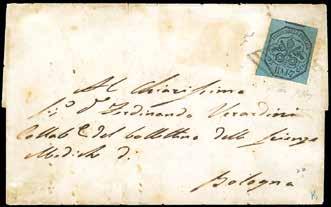 Al Chiarissimo
Sig.r D.r Ferdinando Verardini
Collab.e del bollettino delle scienze
Mediche di
Bologna
BAJ